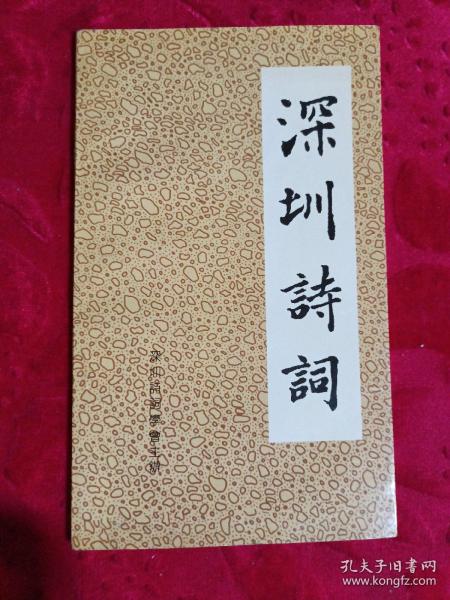 深圳詩詞
深圳詩詞學會主辦
孔夫子旧书网
www.kongfz.com